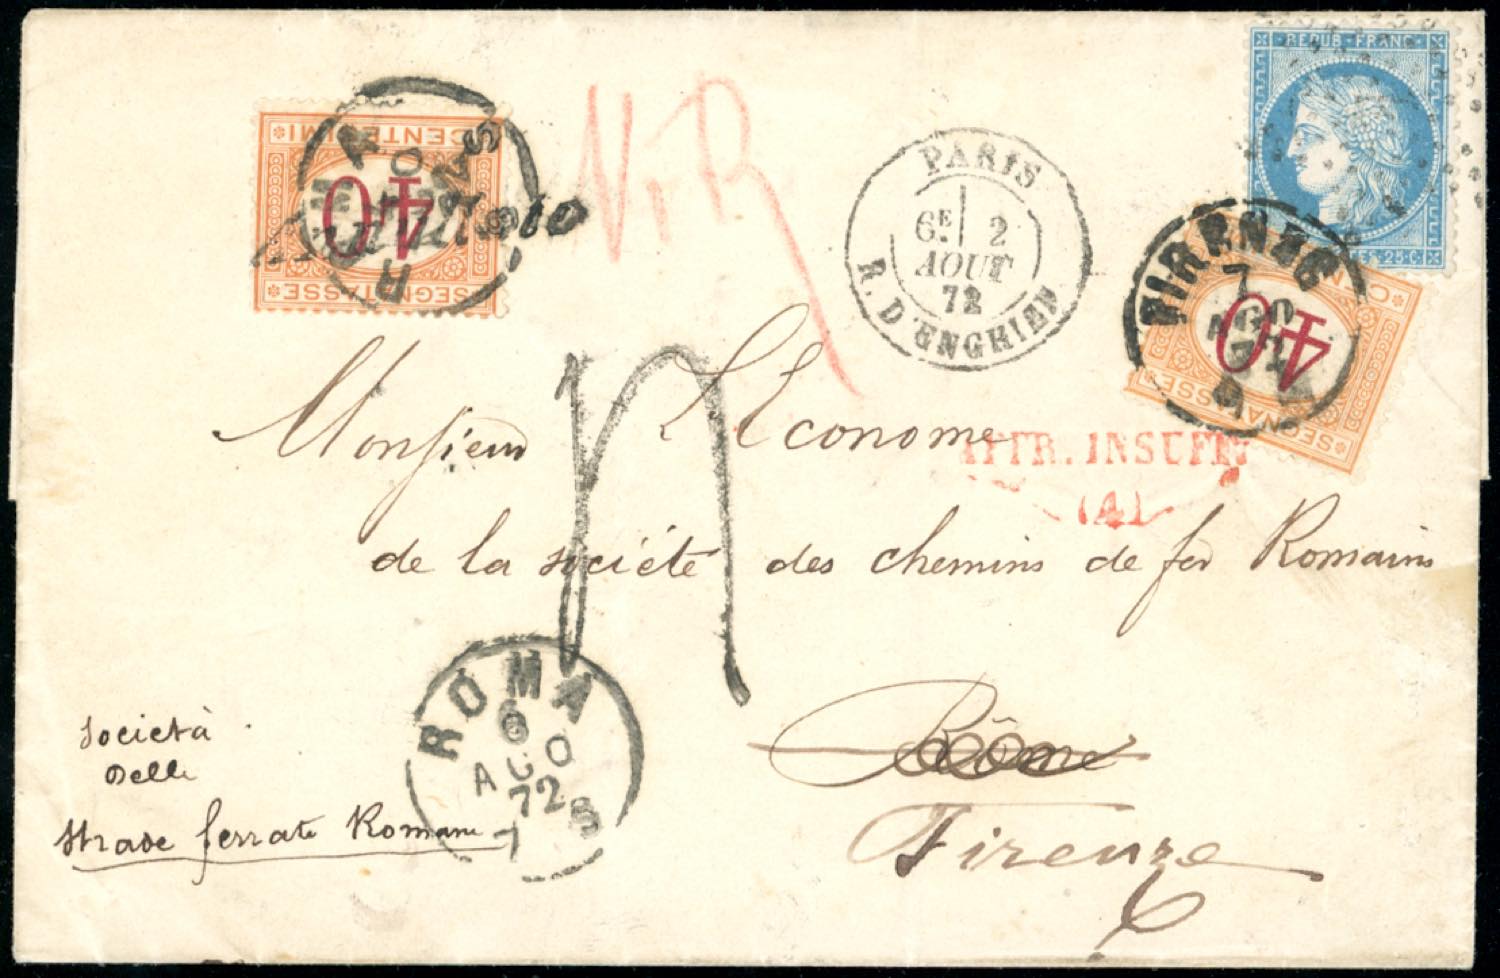 REPUB·FRANC·
25·C·
CENTESIMI
40
SEGNATASSE
Annullato
N.R
PARIS
6E 2
AOUT
72
R. D'ENGHIEN
FIRENZE
7
AGO
40
SEGNATASSE
Monsieur L'Econome
AFFR. INSUFF.
(4)
de la société des chemins de fer Romains
ROMA
6
AGO
72
7 S
Rôme
Firenze
Società
Delle
Strade ferrate Romane